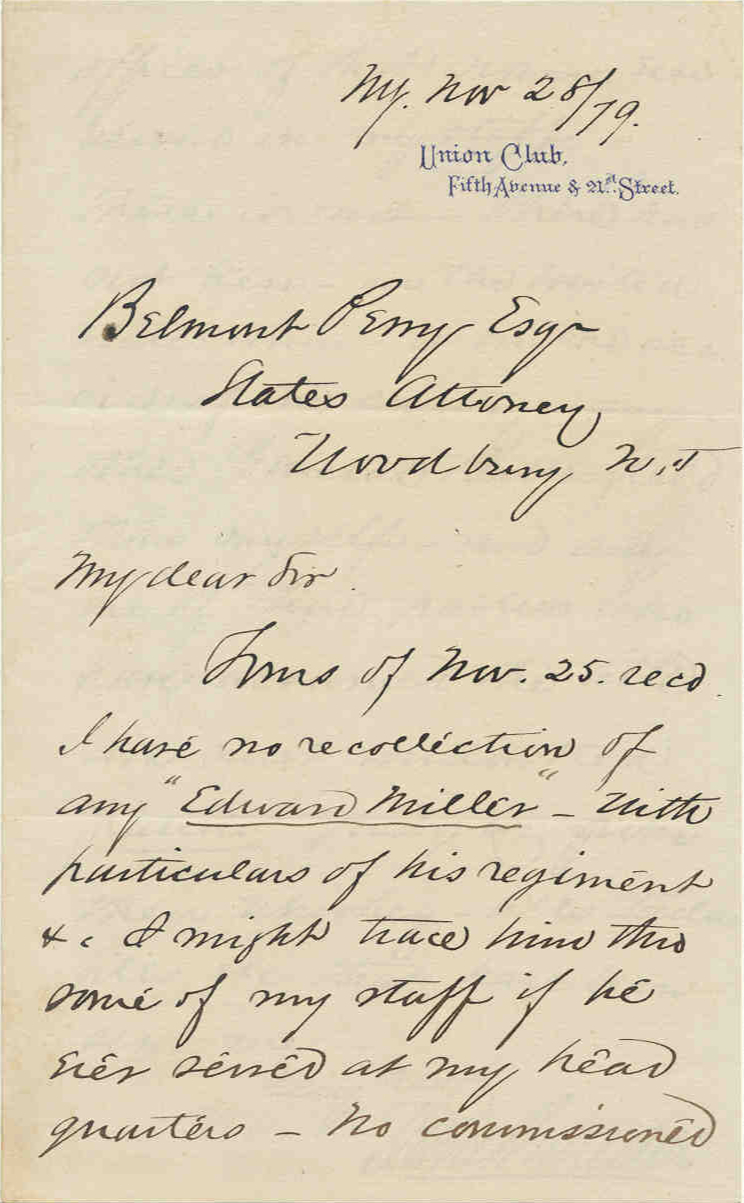 Ny. Nov 28/79.
Union Club,
Fifth Avenue & 21st. Street.
Belmont Perry Esqr
States Attorney,
Woodbury N.J
My dear Sir.
Yours of Nov. 25. recd.
I have no recollection of
any "Edward Miller" - With
particulars of his regiment
&c I might trace him thro
some of my staff if he
ever served at my head
quarters - No commissioned